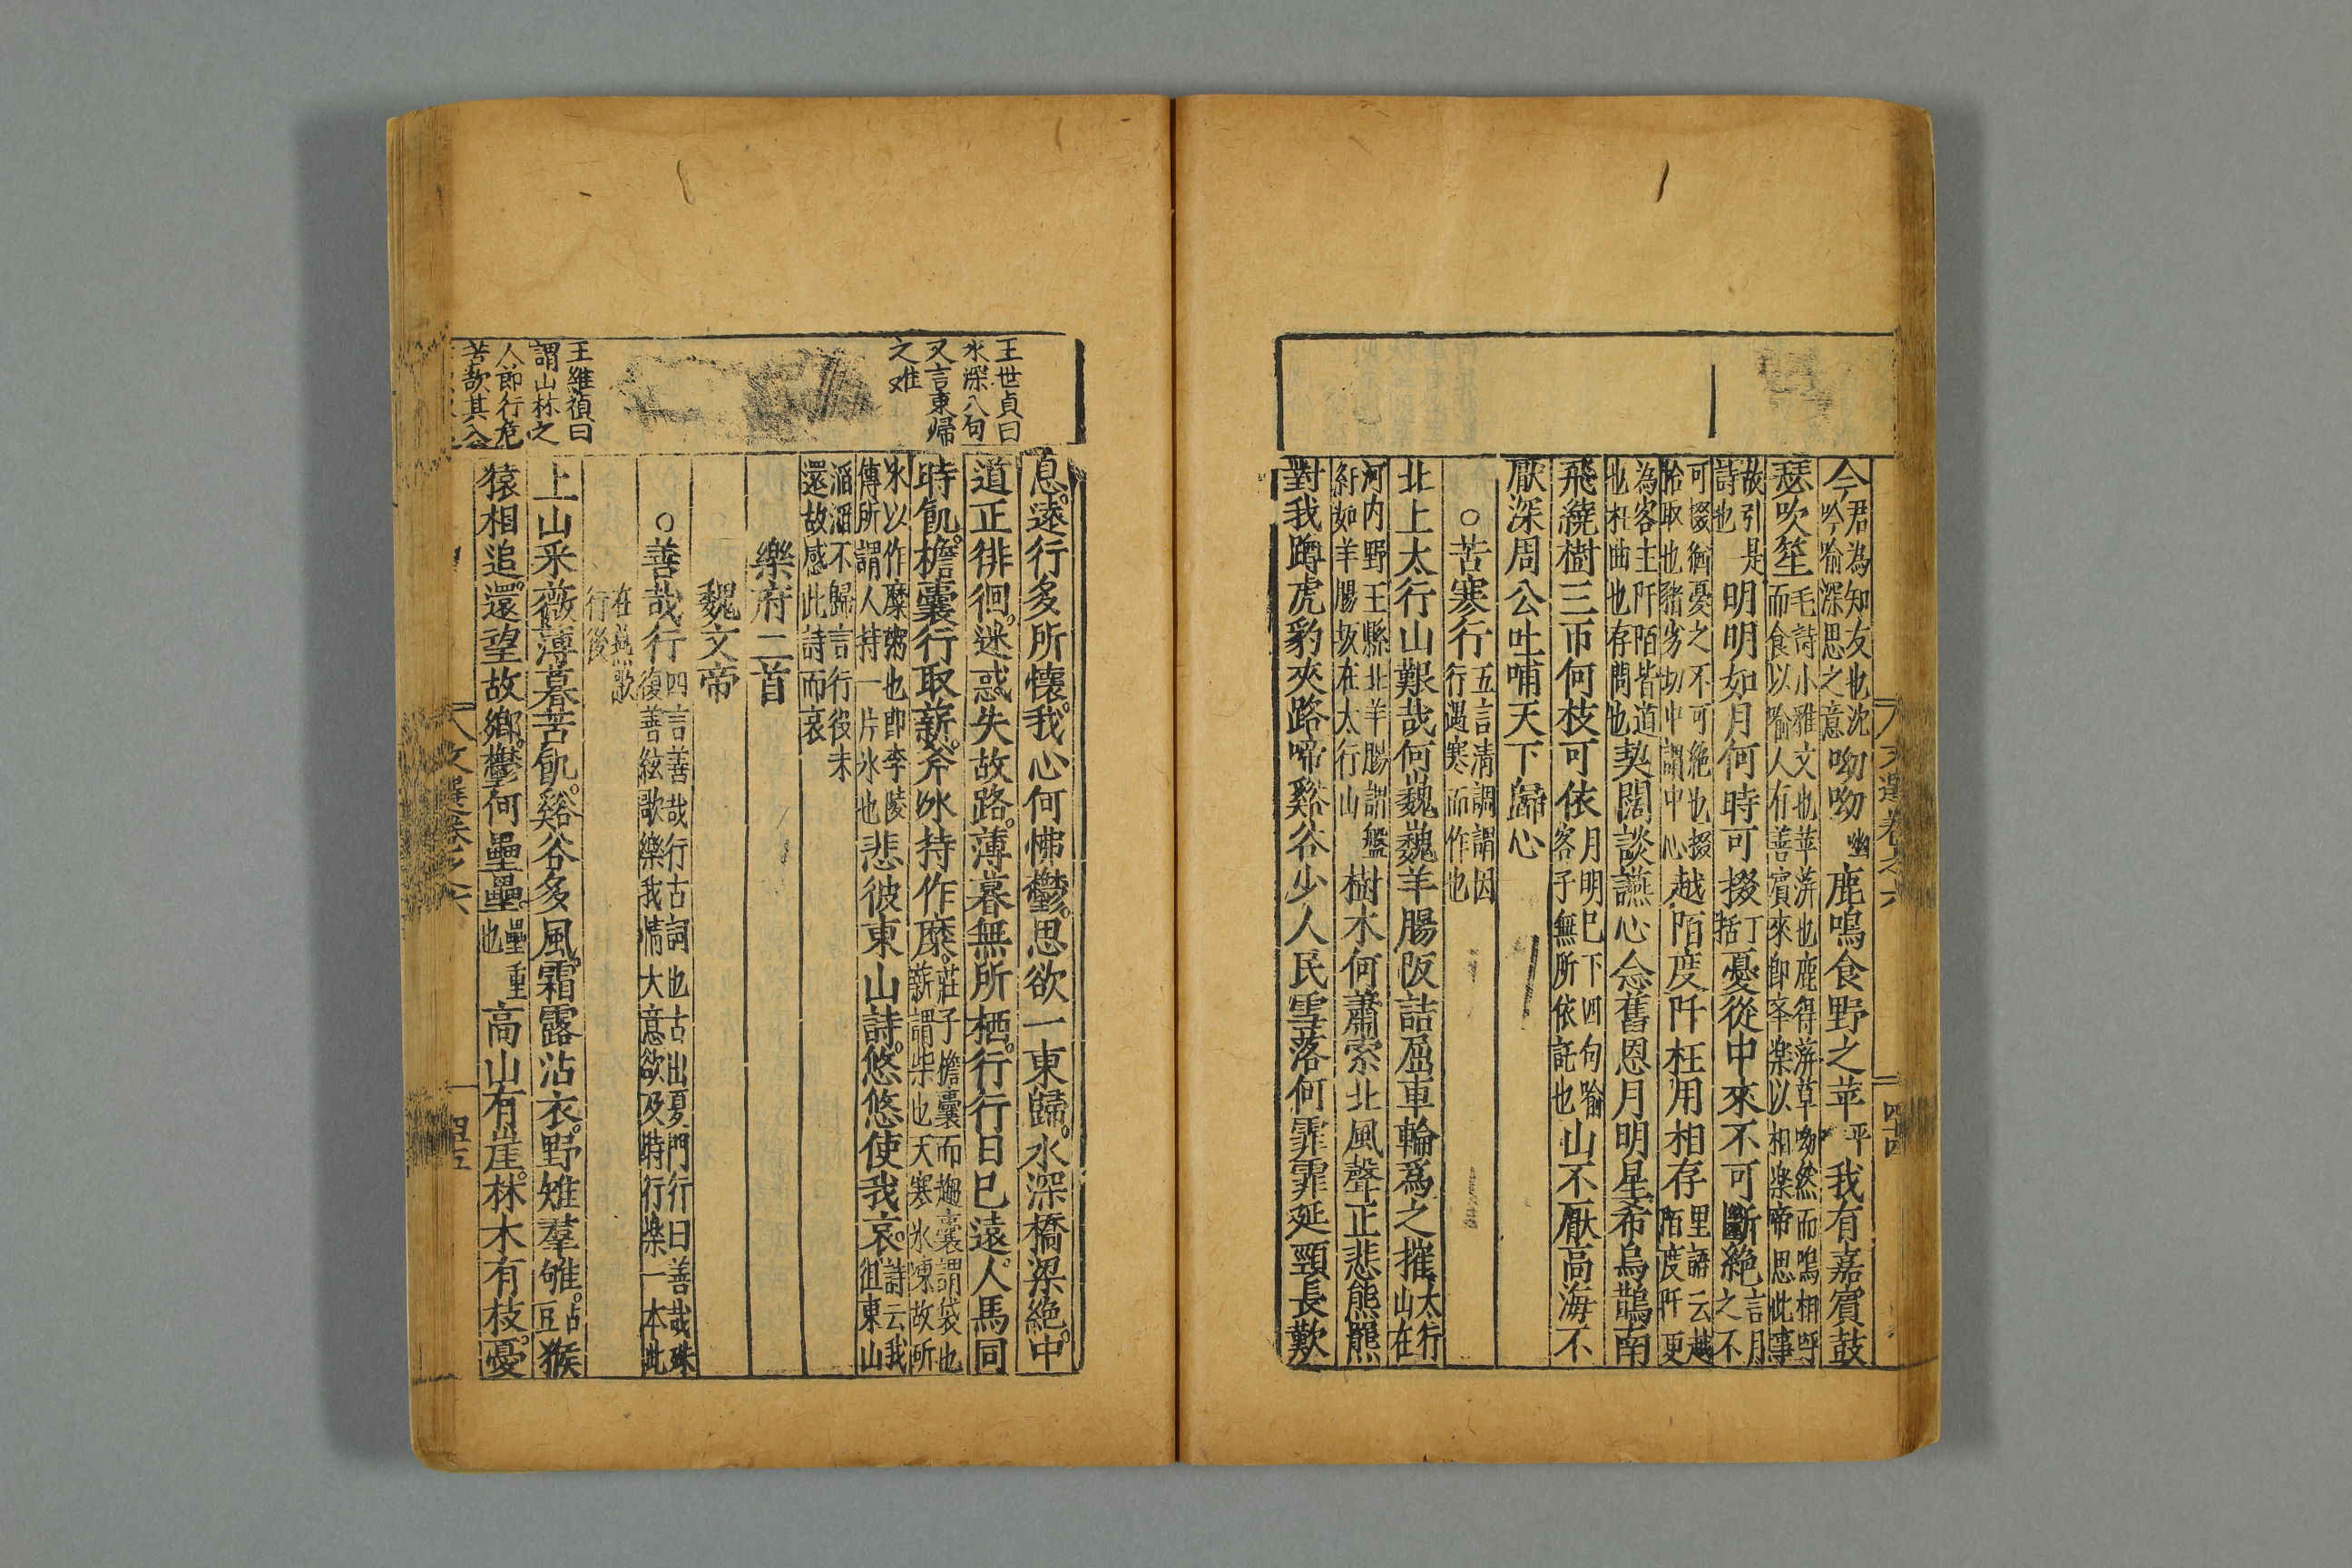 文選卷之六
四十四
今君為知友也沈吟喻深思之意呦呦幽鹿鳴食野之苹平我有嘉賓鼓
瑟吹笙毛詩小雅文也苹蓱也鹿得蓱草呦然而鳴相呼而食以喻人有善賓來即宰樂以相樂帝思此事
故引是詩也明明如月何時可掇丁括憂從中來不可斷絶言月之不
可掇猶憂之不可絶也掇拾取也猪劣切中謂中心越陌度阡枉用相存里語云越陌度阡更
為客主阡陌皆道也枉曲也存問也契闊談讌心念舊恩月明星希烏鵲南
飛繞樹三帀何枝可依月明已下四句喻客子無所依託也山不厭高海不
厭深周公吐哺天下歸心
○苦寒行五言清調謂因行遇寒而作也
北上太行山艱哉何巍巍羊腸阪詰屈車輪爲之摧太行山在
河内野王縣北羊腸謂盤紆如羊腸坂在太行山樹木何蕭索北風聲正悲熊羆
對我蹲虎豹夾路啼谿谷少人民雪落何霏霏延頸長歎
王世貞曰
水深八句
又言東歸
之难
息遠行多所懷我心何怫鬱思欲一東歸水深橋梁絶中
道正徘徊迷惑失故路薄暮無所栖行行日已遠人馬同
時飢檐囊行取薪斧氷持作糜莊子檐囊而趨囊謂袋也薪謂柴也天寒氷凍故斫
氷以作糜粥也即李陵傳所謂人持一片氷也悲彼東山詩悠悠使我哀詩云我徂東山
滔滔不歸言行役未還故感此詩而哀
樂府二首
魏文帝
○善哉行四言善哉行古詞也古出夏門行曰善哉殊行復善絃歌樂我情大意欲及時行樂一本此
在燕歌行後
王維禎曰
謂山林之
人節行危
苦歆其公
上山采薇薄暮苦飢谿谷多風霜露沾衣野雉羣雊古豆猴
猿相追還望故鄉鬱何壘壘壘重也高山有崖林木有枝憂
文選卷之六
四十五